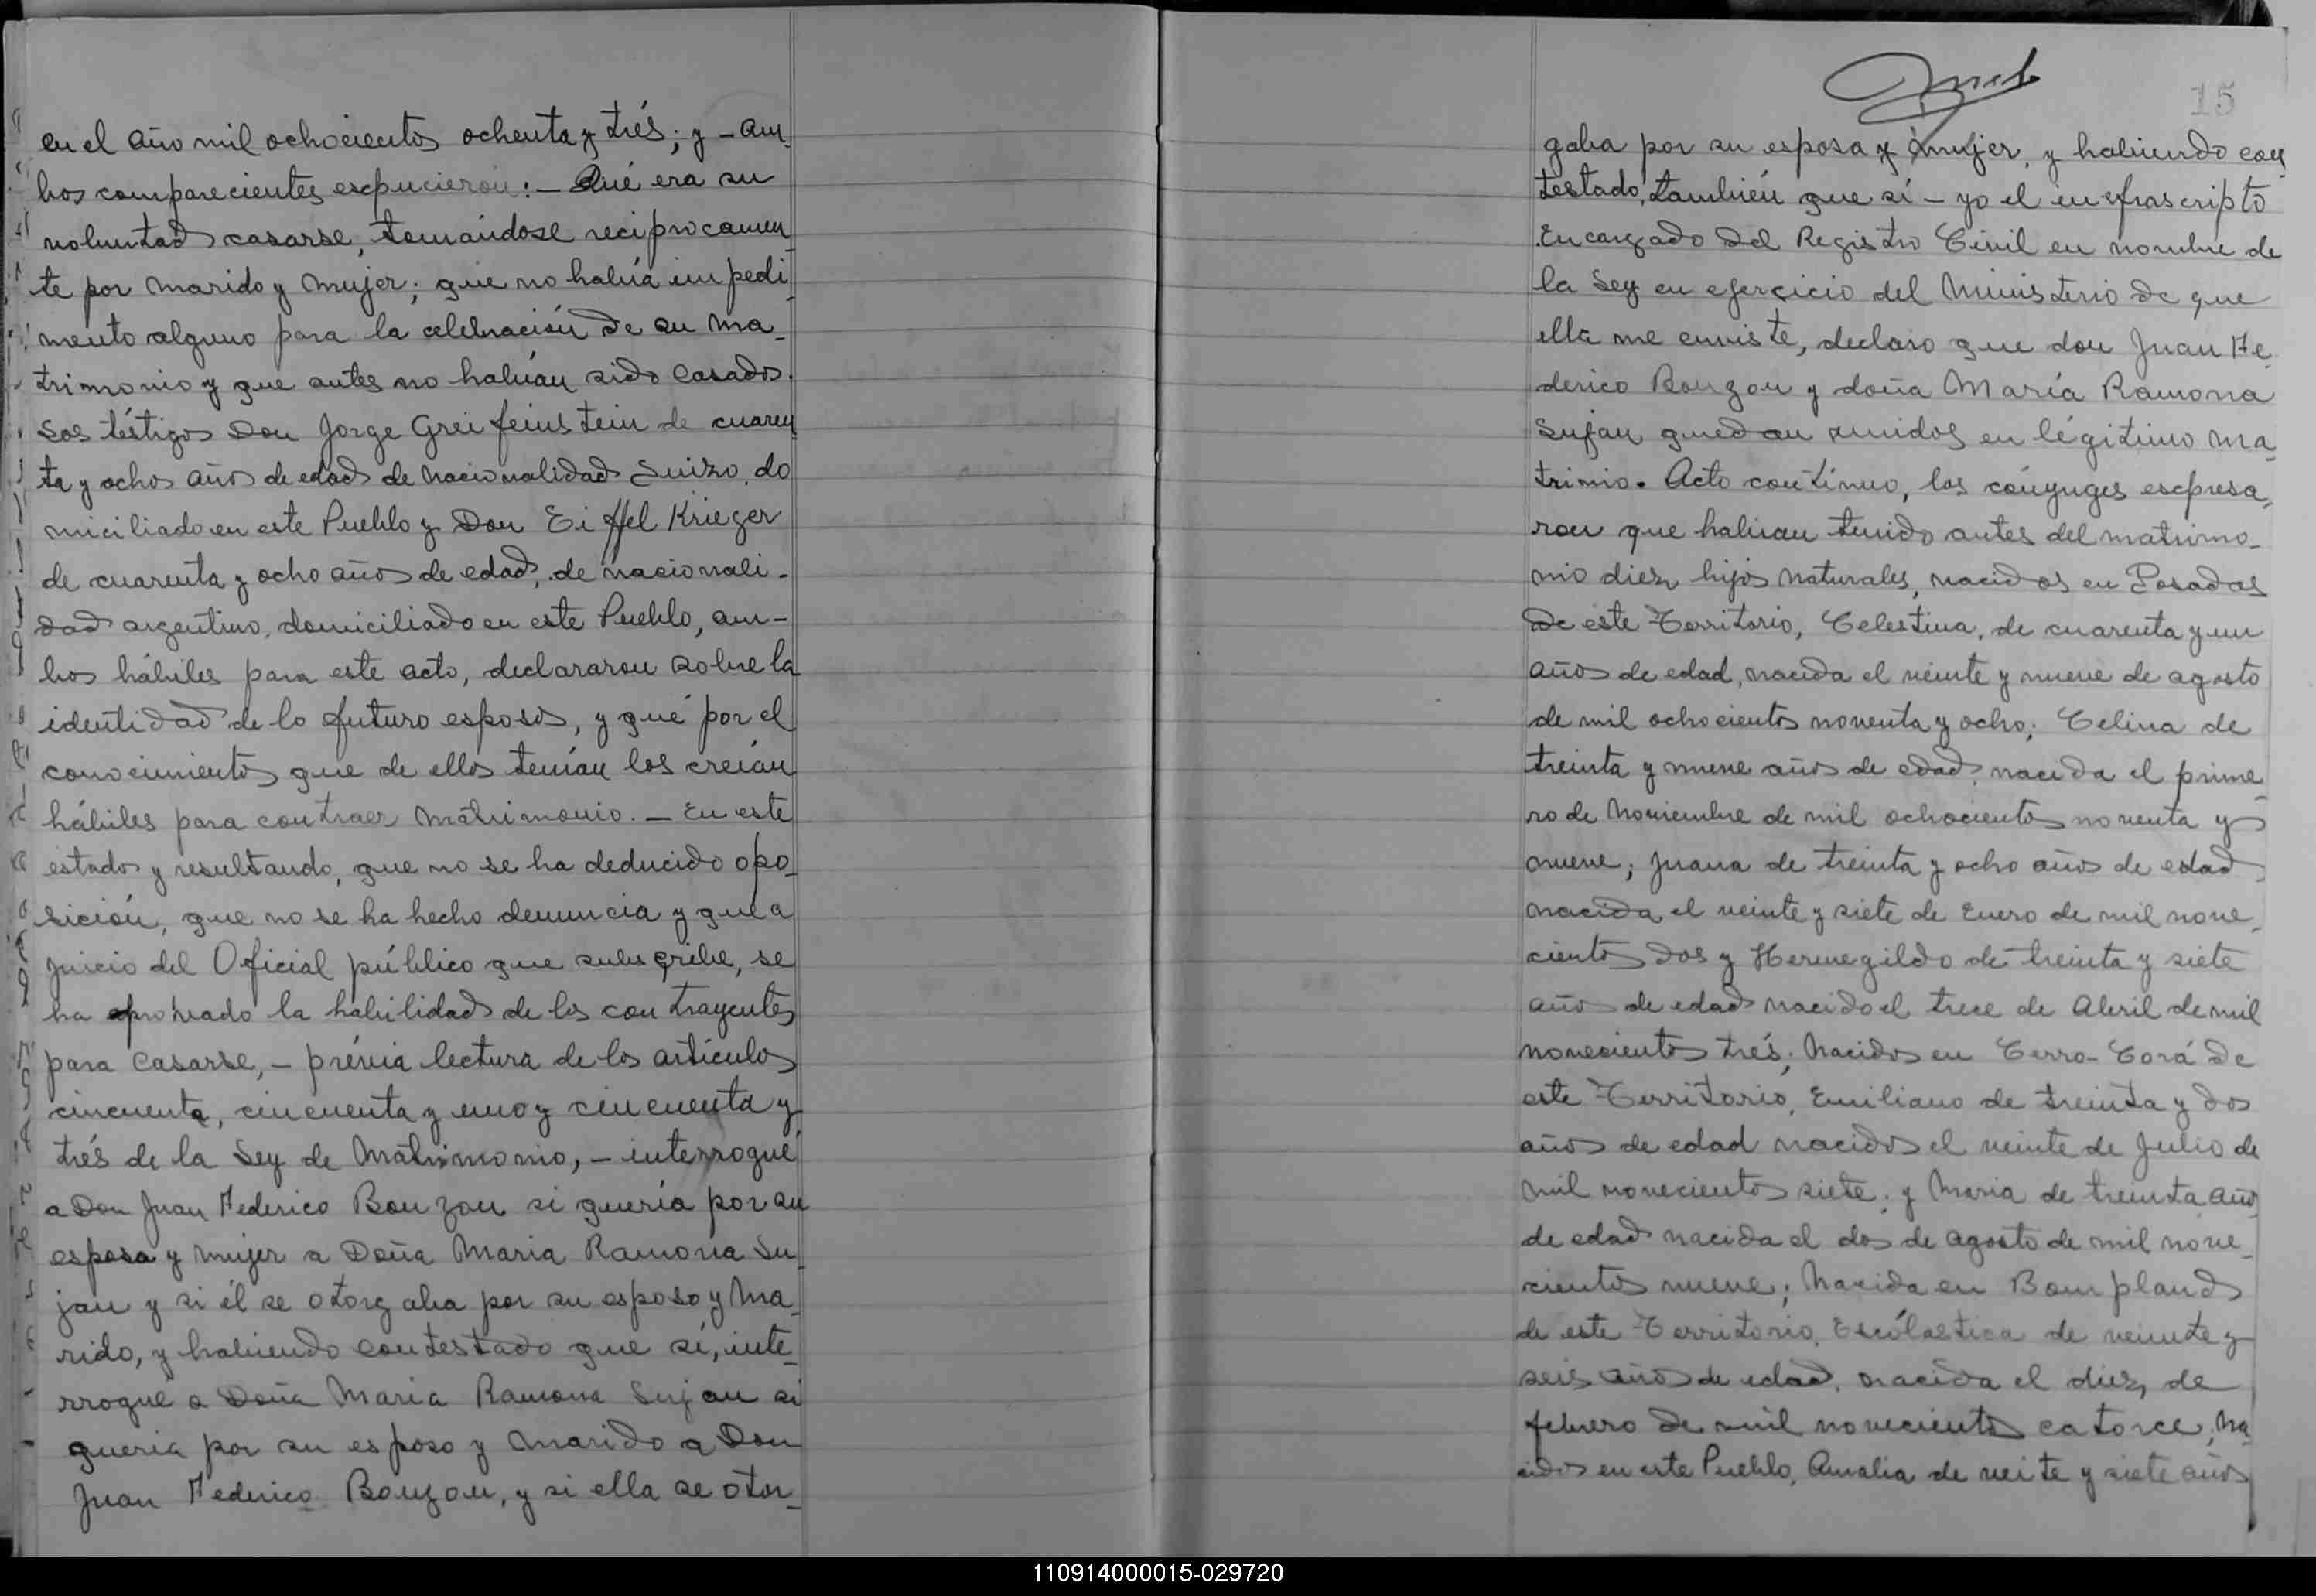 en el año mil ochocientos ochenta y trés; y - am-
bos comparecientes escpucieron: - Qué era su
voluntad casarse, tomándose reciprocamen-
te por marido y mujer; que no había impedi-
mento alguno para la celebración de su ma-
trimonio y que antes no habían sido casados.
Los téstigos Don Jorge Greifeinstein de cuaren-
ta y ochos años de edad de nacionalidad Suizo, do
miciliado en este Pueblo y Don Eiffel Krieger
de cuarenta y ocho años de edad, de nacionali-
dad argentino, domiciliado en este Pueblo, am-
bos hábiles para este acto, declararon sobre la
identidad de lo futuro esposos, y qué por el
conocimientos que de ellos tenían los creían
hábiles para contraer matrimonio. - En este
estado y resultando, que no se ha deducido opo-
sición, que no se ha hecho denuncia y que a
juicio del Oficial público que subscribe, se
ha aprobado la habilidad de los contrayentes
para casarse, - prévia lectura de los artículos
cincuenta, cincuenta y uno y cincuenta y
trés de la Ley de Matrimonio, - interrogué
a Don Juan Federico Bouzon si quería por su
esposa y mujer a Doña Maria Ramona Lu-
jan y si él se otorgaba por su esposo y ma-
rido, y habiendo contestado que sí, inte-
rroqué a Doña Maria Ramona Lujan si
queria por su esposo y marido a Don
Juan Federico Bouzon, y si ella se otor-
15
gaba por su esposa y mujer, y habiendo con-
testado, también que sí - yo el infrascripto
Encargado del Registro Civil en nombre de
la Ley en ejercicio del Ministerio de que
ella me enviste, declaro que don Juan Fe-
derico Bouzon y doña María Ramona
Lujan quedan unidos en légitimo ma-
trimio. Acto contínuo, los cónyuges escpresa-
ron que habian tenido antes del matrimo-
nio diez hijos naturales, nacidos en Posadas
de este Territorio, Celestina, de cuarenta y un
años de edad, nacida el veinte y nueve de agosto
de mil ochocientos noventa y ocho; Celina de
treinta y nueve años de edad, nacida el prime-
ro de Noviembre de mil ochocientos noventa y
nueve; Juana de treinta y ocho años de edad
nacida el veinte y siete de Enero de mil nove-
cientos dos y Hermegildo de treinta y siete
años de edad nacido el trece de Abril de mil
novecientos trés; Nacidos en Cerro-Corá de
este Territorio, Emiliano de treinta y dos
años de edad nacidos el veinte de Julio de
mil novecientos siete; y Maria de treinta años
de edad nacida el dos de agosto de mil nove-
cientos nueve; Nacida en Bompland
de este Territorio, Escólastica de veinte y
seis años de edad, nacida el diez de
febrero de mil novecientos catorce; Na-
cidos en este Pueblo, Amalia de veite y siete años
110914000015-029720